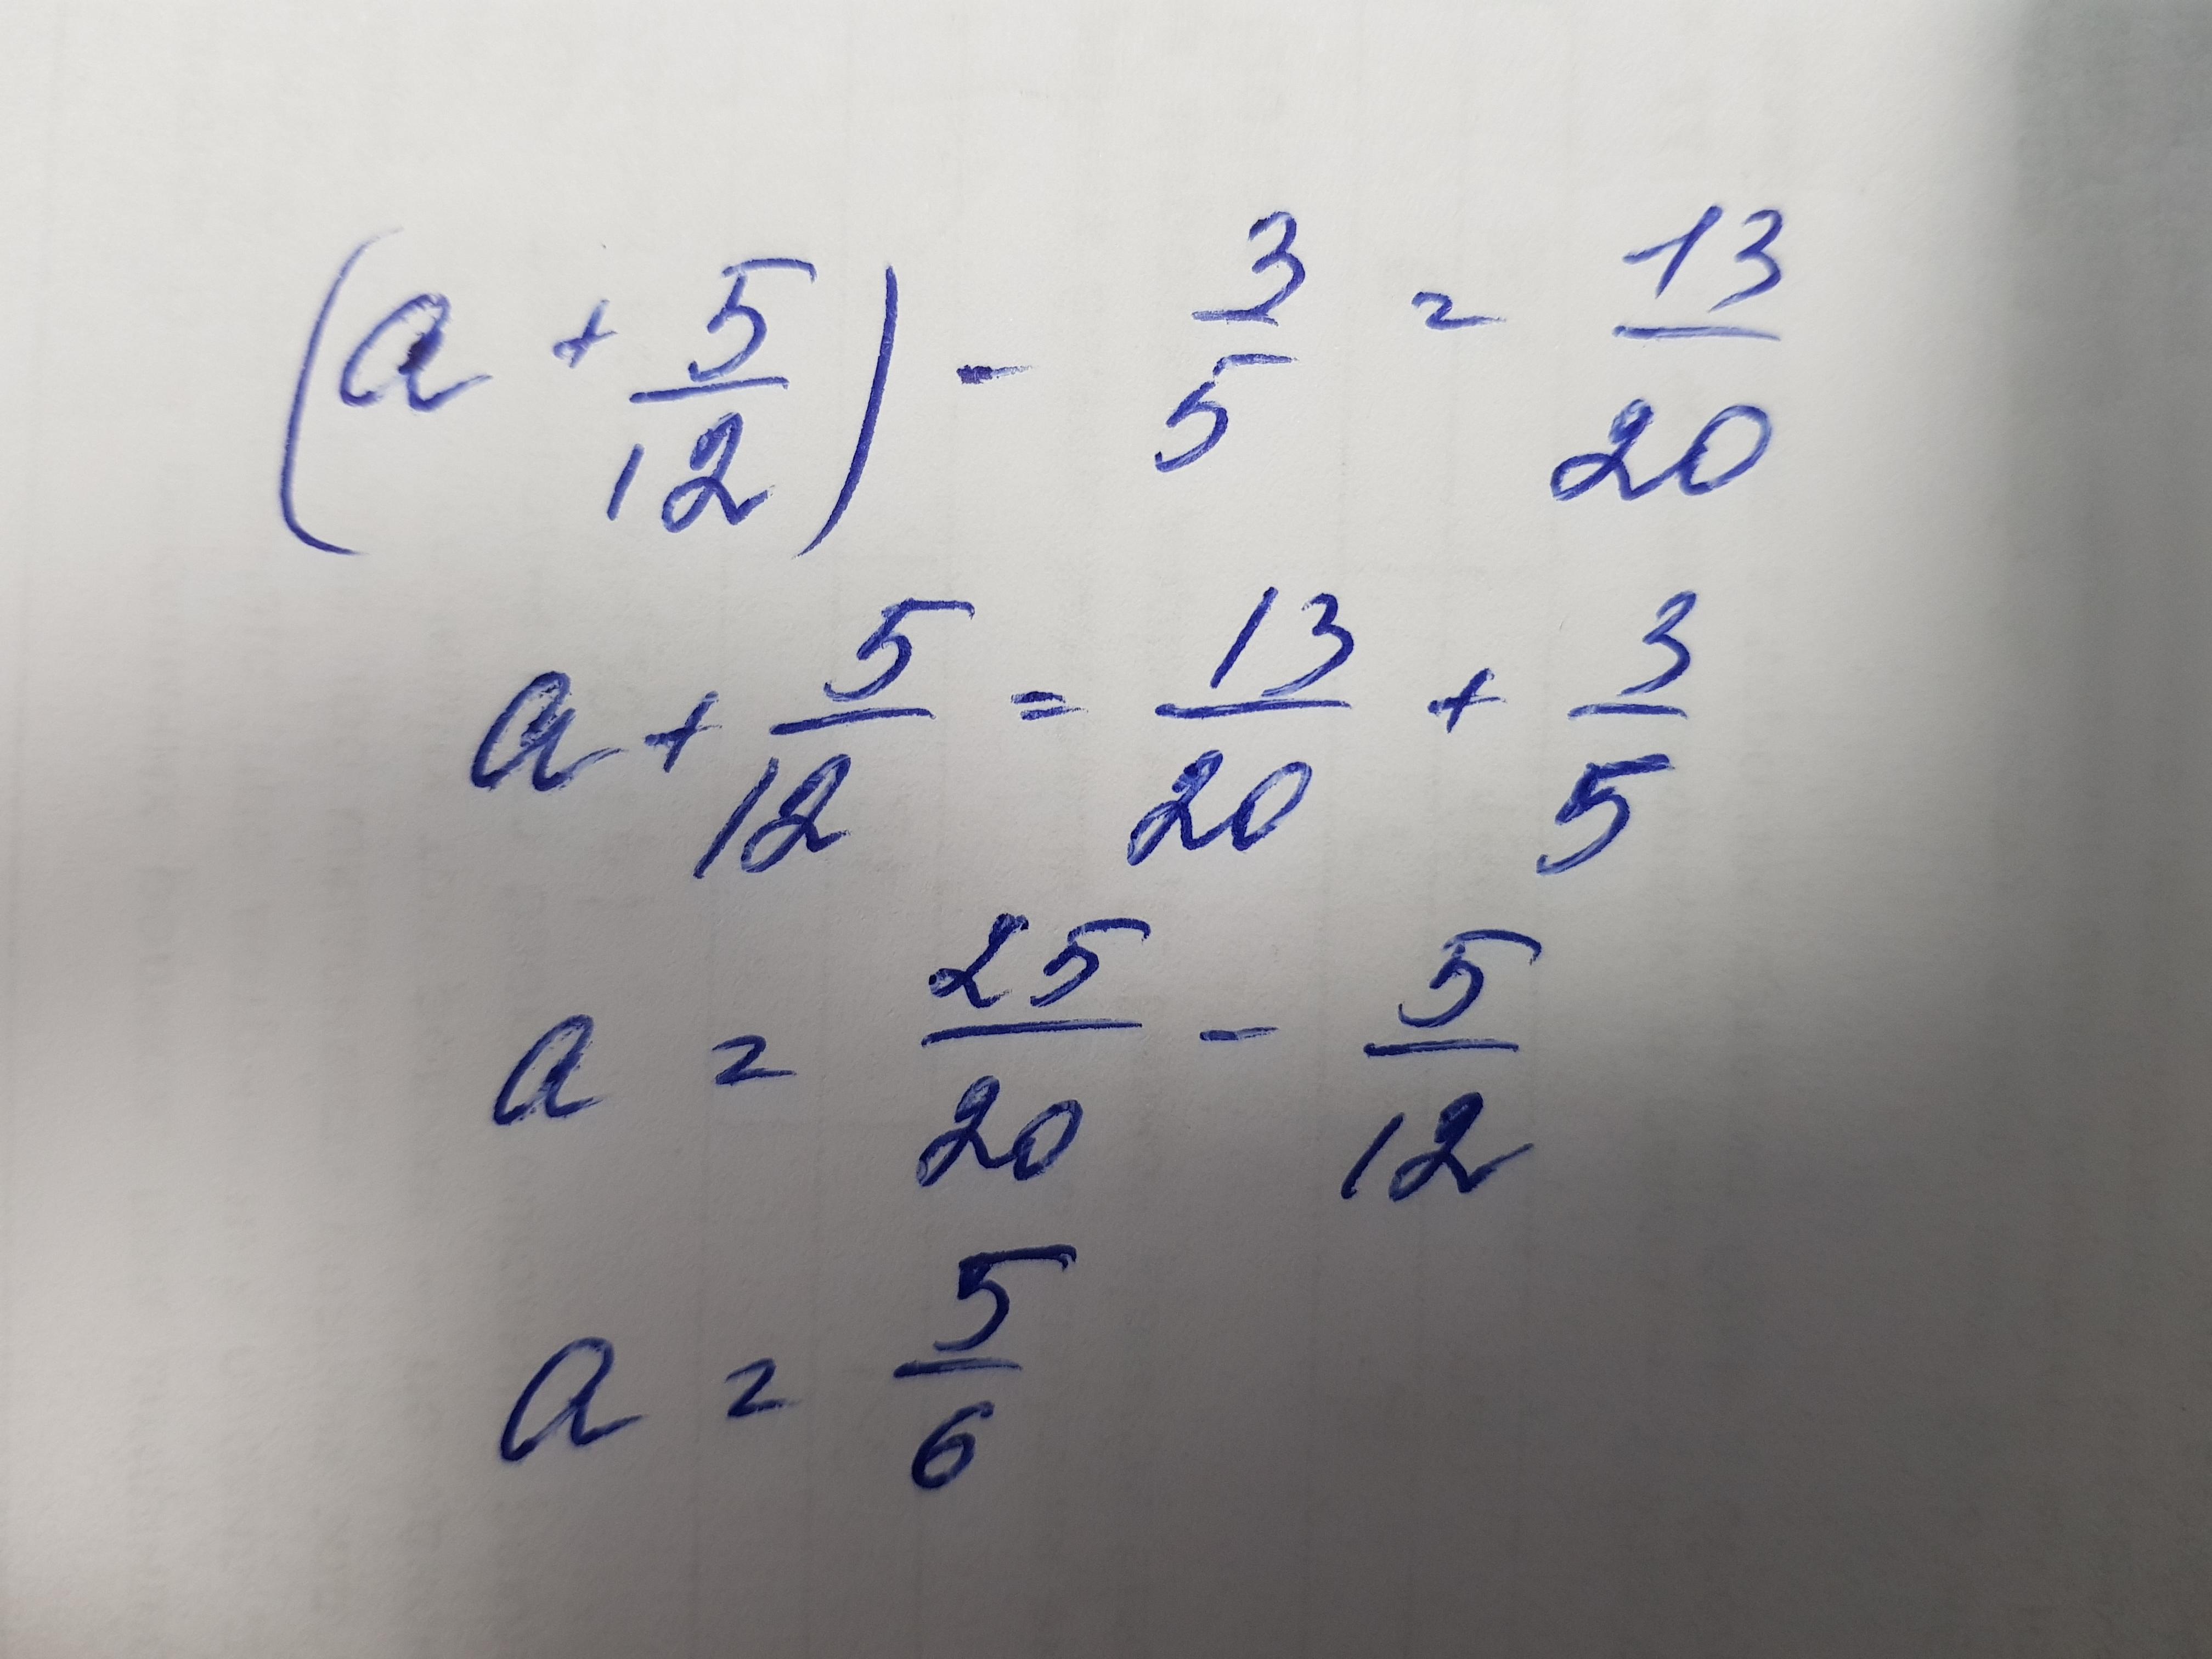 (a + 5/12) - 3/5 = 13/20
a + 5/12 = 13/20 + 3/5
a = 25/20 - 5/12
a = 5/6